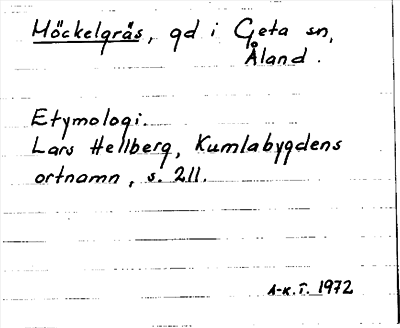 Höckelgräs, gd i Geta sn,
Åland.
Etymologi.
Lars Hellberg, Kumlabygdens
ortnamn, s. 211.
A-K.T. 1972